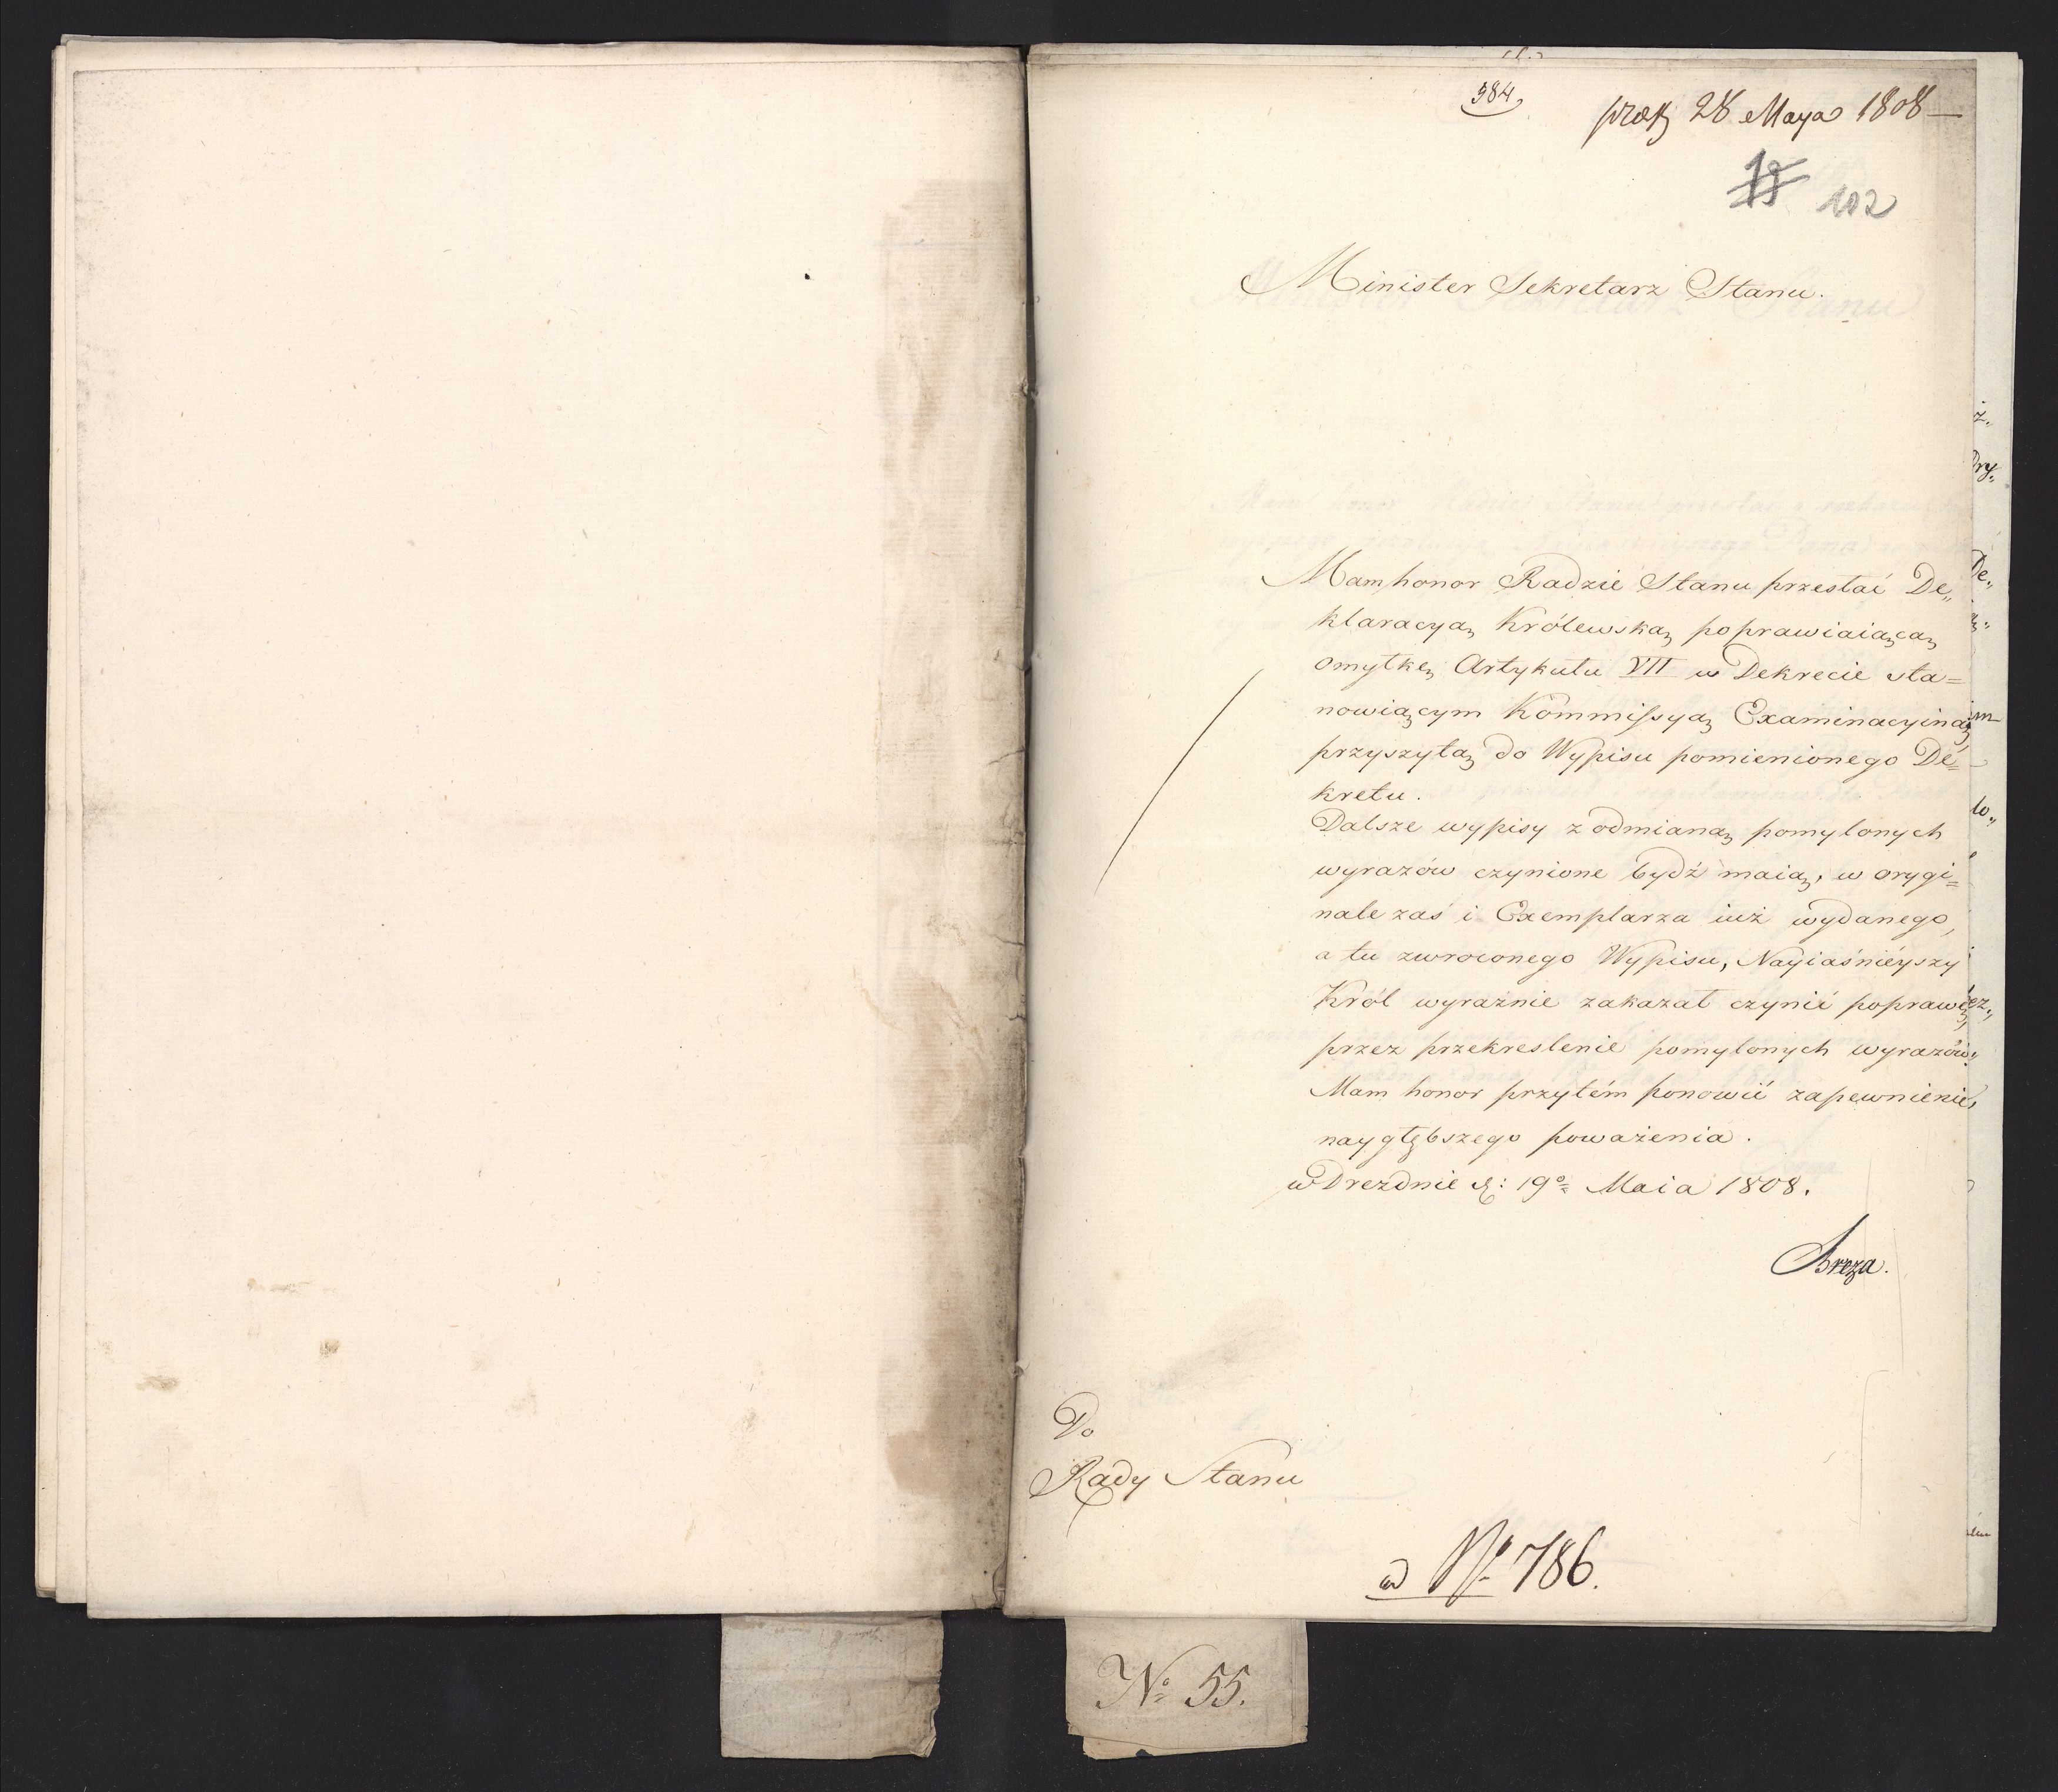 384.
præs 28 Maya 1808
102
Minister Sekretarz Stanu.
Mam honor Radzie Stanu przesłać De„
klaracyą Królewską poprawiaiącą
omyłkę Artykułu VII w Dekrecie sta=
nowiącym Kommissyą Examinacyiną
przyszytą do Wypisu pomienionego De=
kretu.
Dalsze wypisy z odmianą pomylonych
wyrazów czynione bydź maią, w orygi=
nale zaś i Exemplarza iuż wydanego,
a tu zwroconego Wypisu, Nayiaśnieyszy
Król wyraznie zakazał czynić poprawę,
przez przekreslenie pomylonych wyrazów.
Mam honor przytém ponowić zapewnienie,
naygłębszego poważenia.
w Dreznie d: 19º Maia 1808.
Breza.
Do
Rady Stanu
ad Nº 786.
Nº 55.